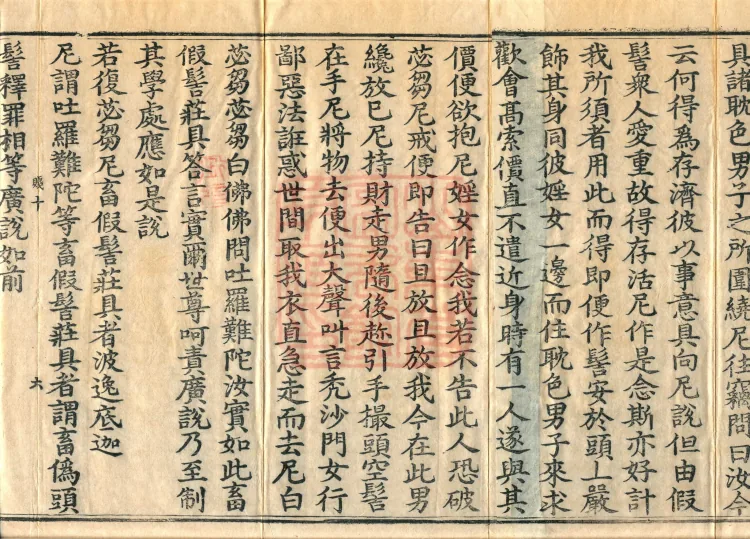 具諸耽色男子之所圍繞尼往竊問曰汝今
云何得為存濟彼以事意具向尼說但由假
髻衆人愛重故得存活尼作是念斯亦好計
我所須者用此而得即便作髻安於頭上嚴
飾其身同彼婬女一邊而住耽色男子來求
歡會高索價直不遣近身時有一人遂與其
價便欲抱尼婬女作念我若不告此人恐破
苾芻尼戒便即告曰且放且放我今在此男
纔放已尼持財走男隨後趂引手撮頭空髻
在手尼將物去便出大聲叫言禿沙門女行
鄙惡法誑惑世間取我衣直急走而去尼白
苾芻苾芻白佛佛問吐羅難陀汝實如此畜
假髻莊具答言實爾世尊呵責廣說乃至制
其學處應如是說
若復苾芻尼畜假髻莊具者波逸底迦
尼謂吐羅難陀等畜假髻莊具者謂畜偽頭
髻釋罪相等廣說如前
十
六